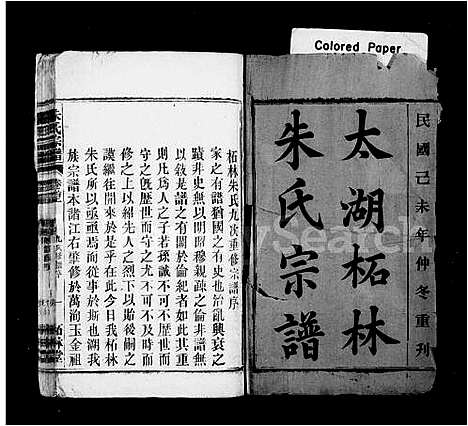 Colored Paper
民國己未年仲冬重刊
太湖柘林
朱氏宗譜
柘林朱氏九次重修宗譜序
家之有譜猶國之有史也治亂興衰之
蹟非史無以明昭穆親疎之倫非譜無
以敘是譜之有關於倫紀者如此其重
則凡爲人之子若孫誠不可不有以
守之旣歷世而守尤不可不及時以
修之上以紹先人之烈下以貽後嗣之
謨繼往開來於是乎在此今日我柘林
朱氏所以亟亟焉而從事於斯也湖我
族宗譜本諸江右肇修於萬洵玉金祖
朱氏宗譜
柘林堂